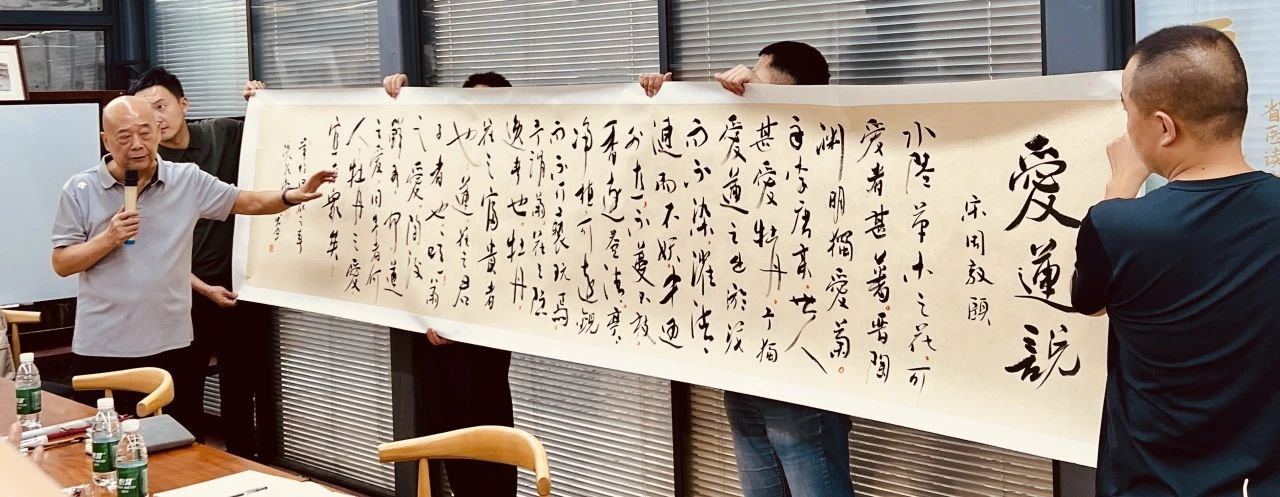 愛蓮說
宋周敦頤
水陸草木之花,可
愛者甚蕃。晋陶
淵明獨愛菊。
自李唐來,世人
甚愛牡丹,予獨
愛蓮之出淤泥
而不染,濯清
漣而不妖,中通
外直,不蔓不枝,
香遠益清,亭亭
淨植,可遠觀
而不可褻玩焉
予謂菊花之隱
逸者也,牡丹
花之富貴者
也,蓮花之君
子者也。噫,菊
之愛陶後
鮮有聞蓮
之愛同予者何
人,牡丹之愛
宜乎眾矣!